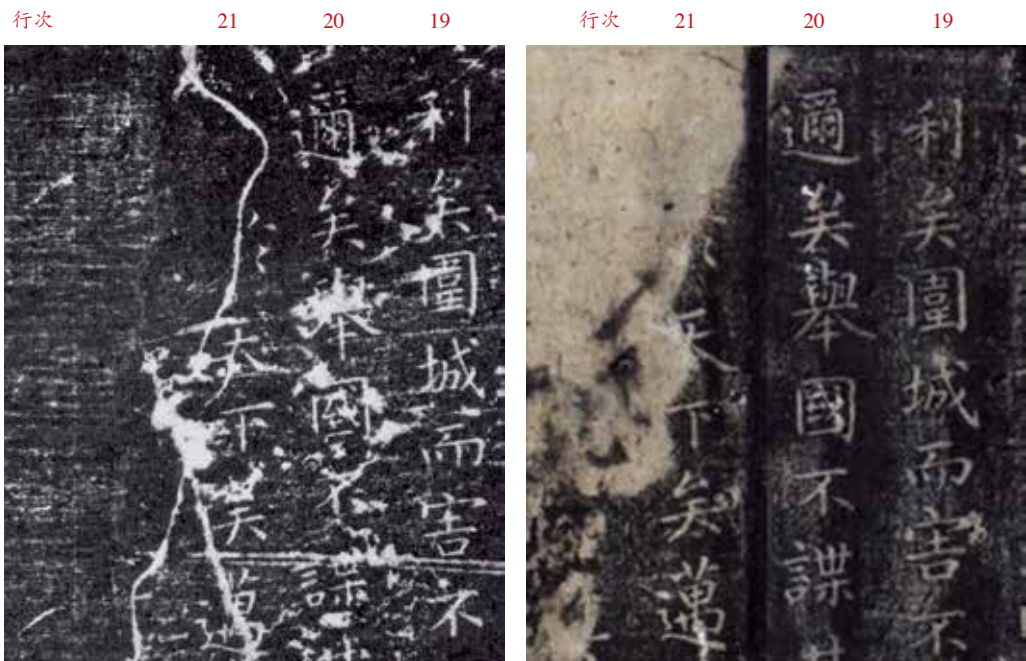 行次 21 20 19
利矣圍城而害不
邇矣舉國不謀
天下矣邁
行次 21 20 19
利矣圍城而害不
邇矣舉國不謀
天下矣邁